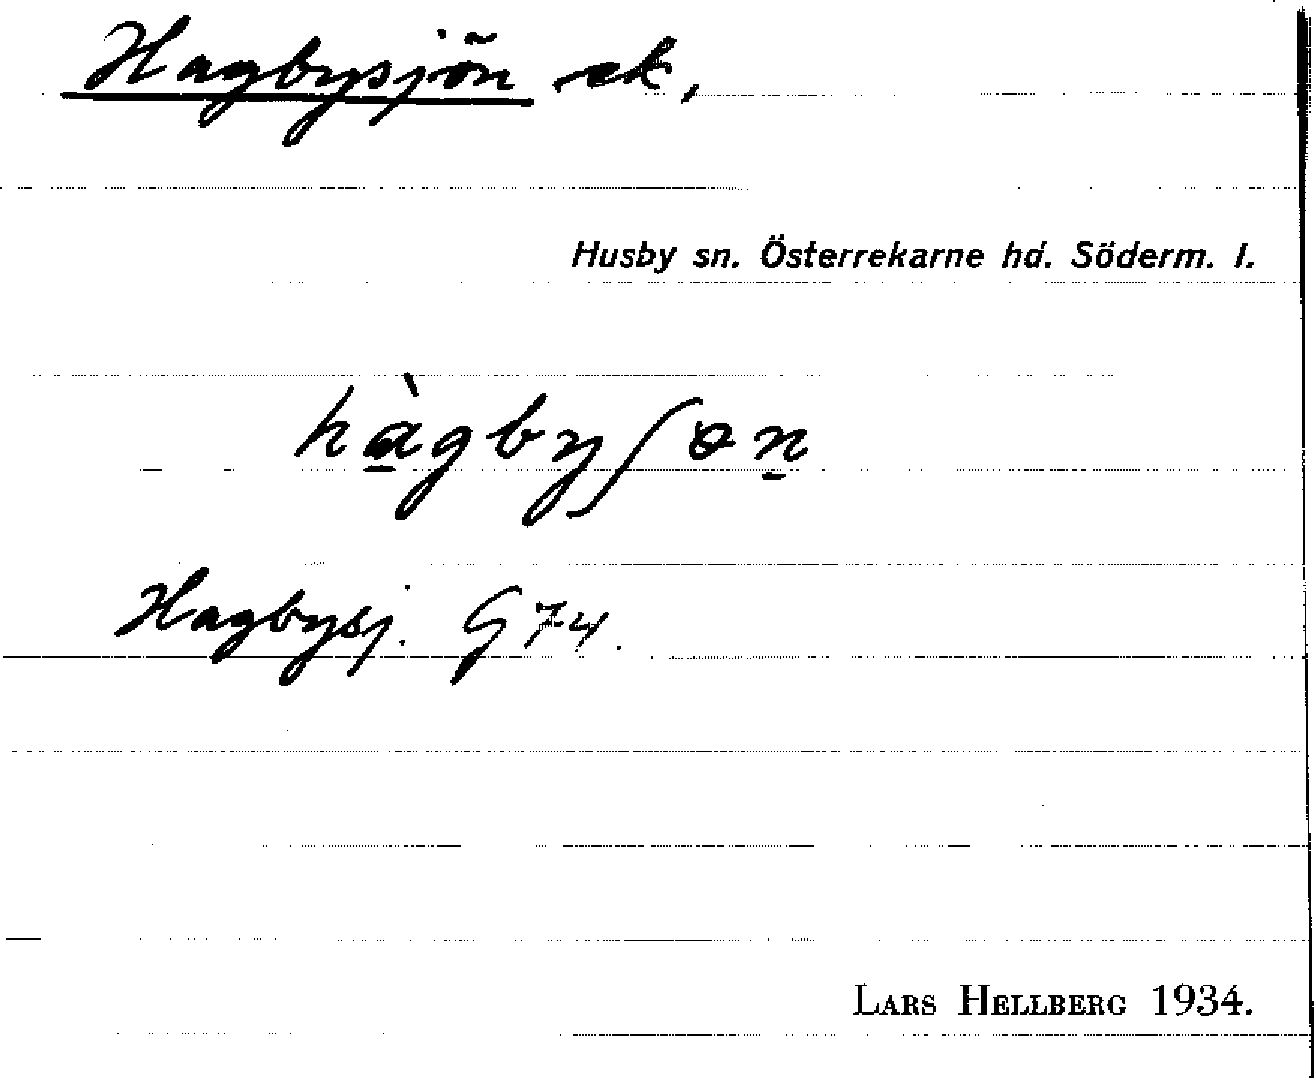 Hagbysjön ek,
Husby sn. Österrekarne hd. Söderm. l.
hàgbyʃɵn
Hagbysj. G 74.
LARS HELLBERG 1934.